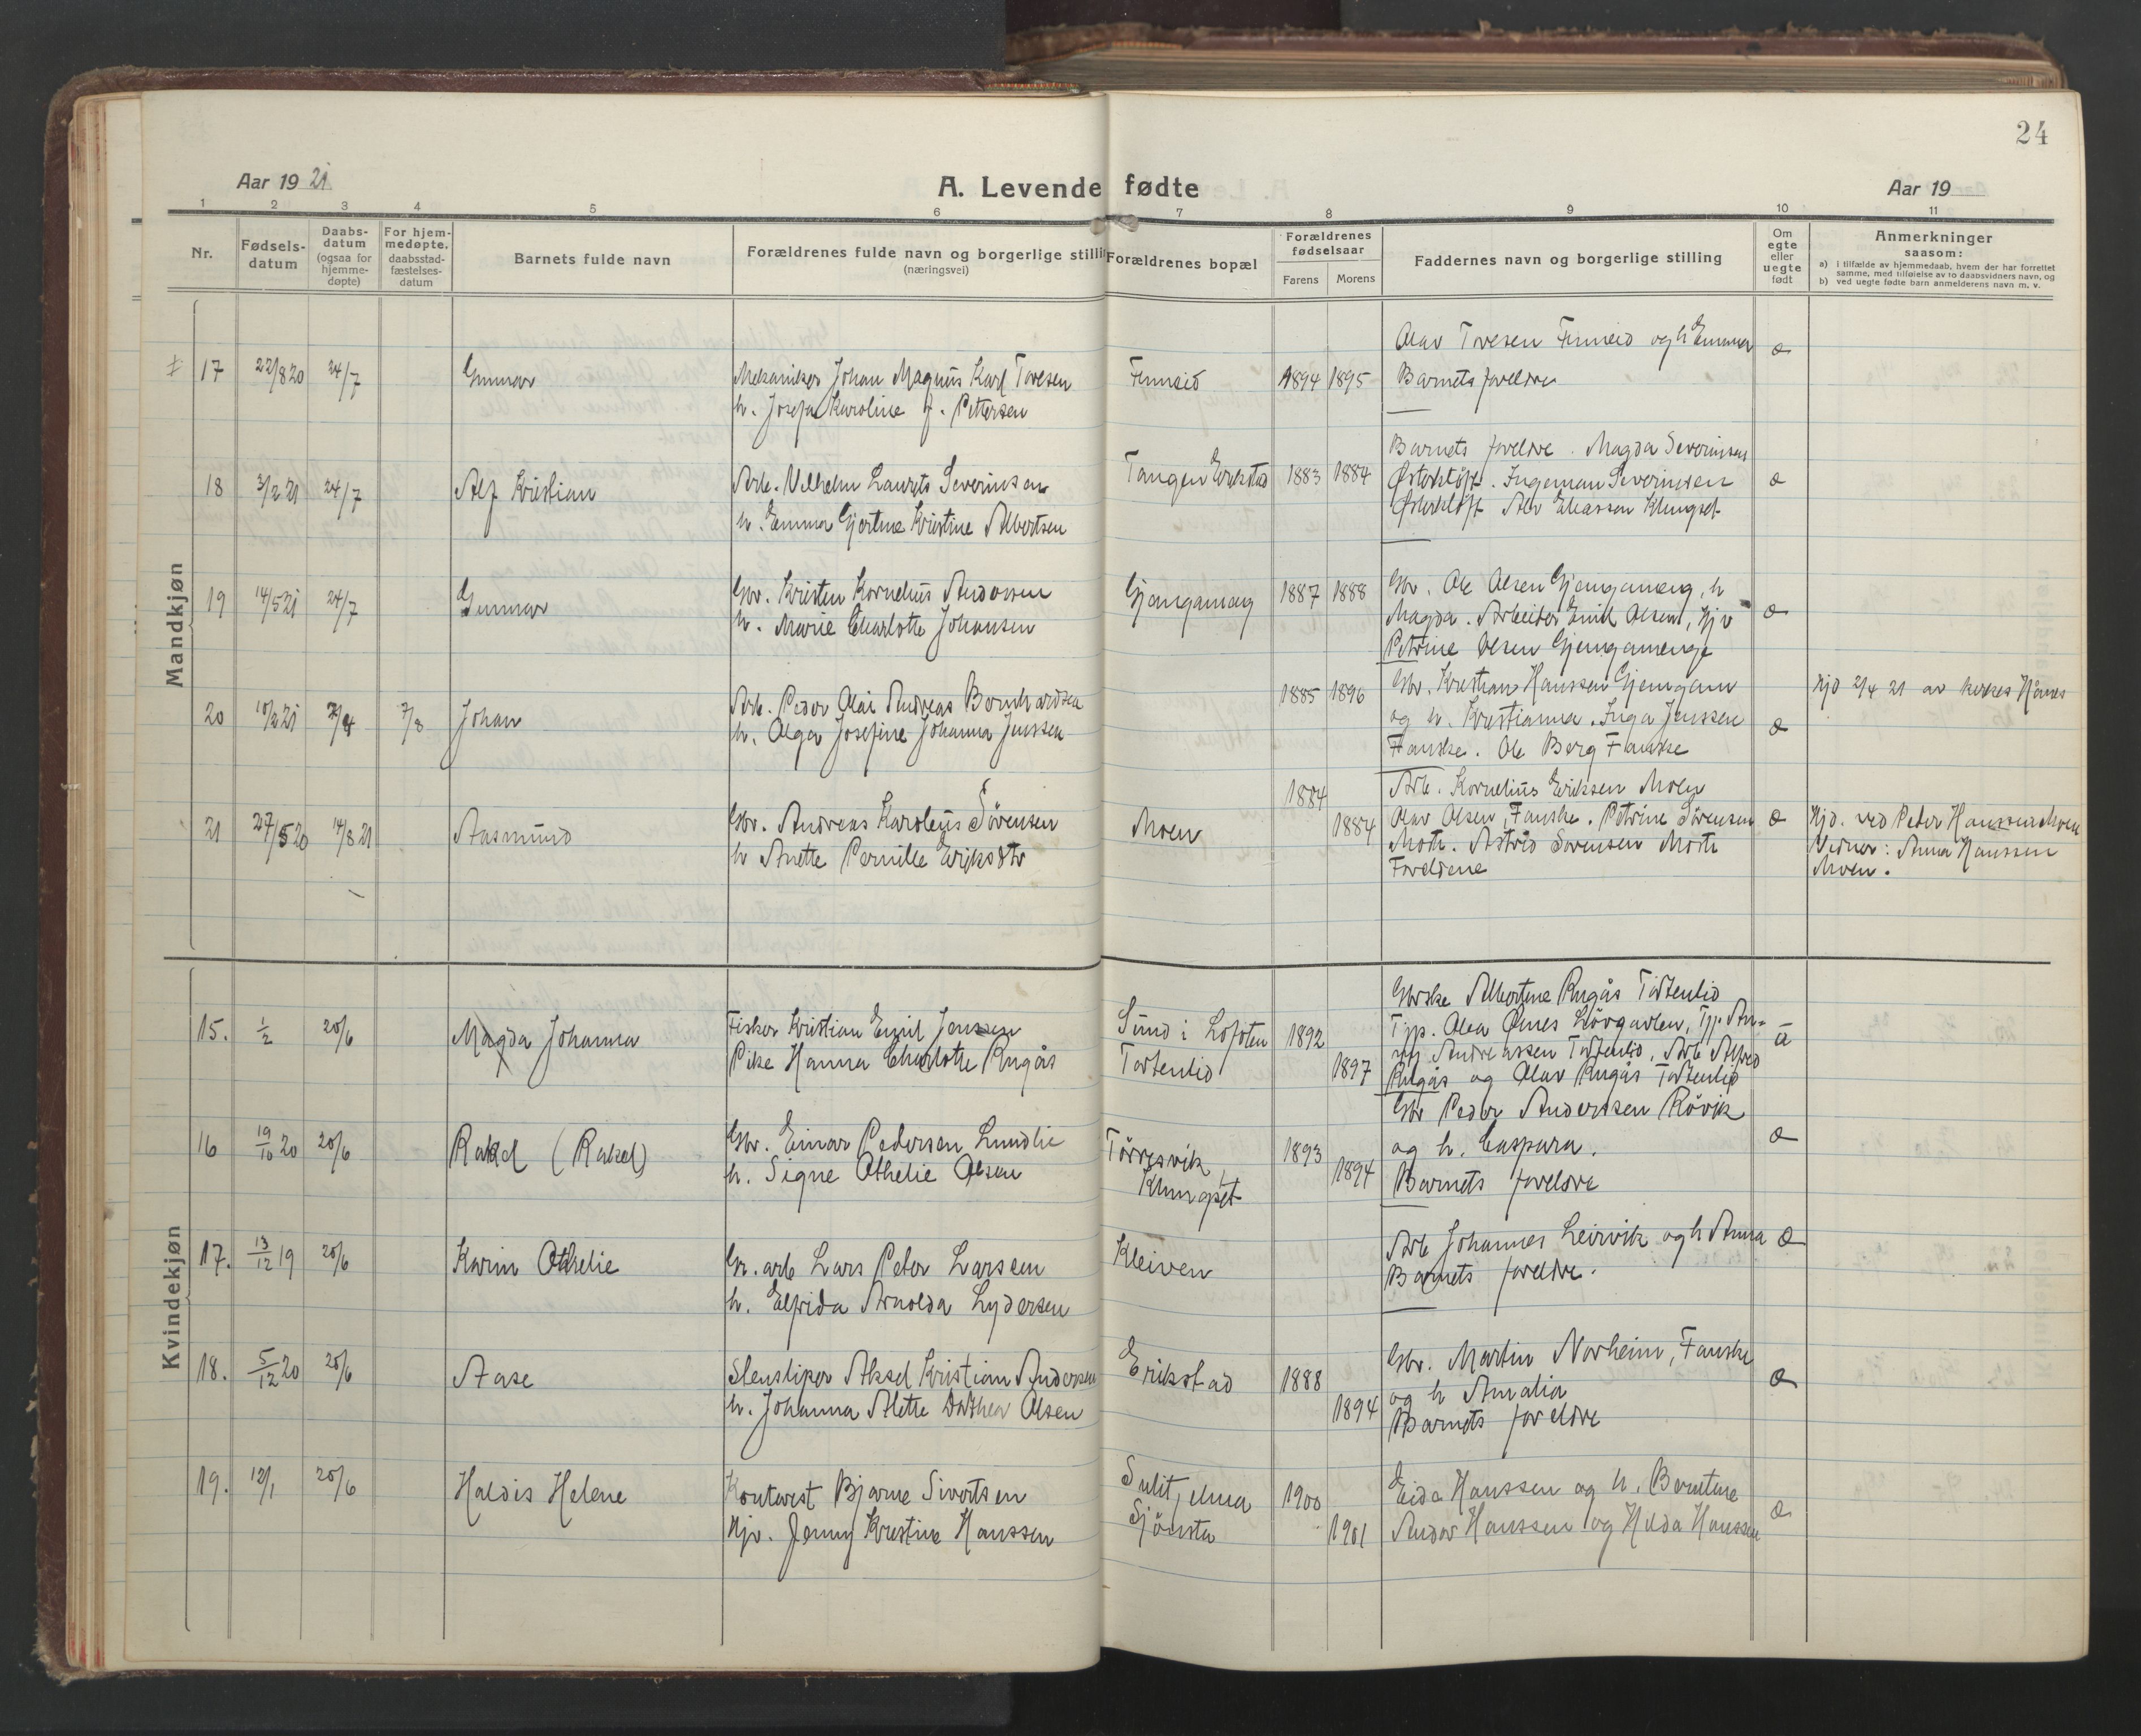 24
Aar 19 21
A. Levende fødte
Aar 19
1 2 3 4 5 6 7 8 9 10 11
Nr.
Fødsels-
datum
Daabs-
datum
(ogsaa for
hjemme-
døpte)
For hjem-
medøpte.
daabsstad-
fæstelses-
datum
Barnets fulde navn
Forældrenes fulde navn og borgerlige stilli
(næringsvei)
Forældrenes bopæl
Forældrenes
fødselsaar
Farens Morens
Faddernes navn og borgerlige stilling
Om
egte
eller
uegte
født
Anmerkninger
saasom:
a) i tilfælde av hjemmedaab, hvem der har forrettet
samme, med tilføielse av to daabsvidners navn, og
b) ved uegte fødte barn anmelderens navn m. v.
Mandkjøn
17 22/8 20 24/7 Gunnar
Mekaniker Johan Magnus Karl Toresen
h. Josefa Karoline f. Pettersen
Finneid 1894 1895
Olav Toresen Finneid og h Emma
Barnets foreldre
æ
18 3/2 21 24/7 Alf Kristian
Arb. Vilhelm Laurits Severinsen
h. Emma Gjertine Kristine Albertsen
Tangen Erikstad 1883 1884
Barnets foreldre. Magda Severinsen
Østerkløft. Ingeman Severinsen
Østerkløft Alv Eliassen Klungset
æ
19 14/5 21 24/7 Gunnar
Gbr. Kristen Kornelius Andersen
h. Marie Charlotte Johansen
Gjengamæg 1887 1888
Gbr. Ole Olsen Gjengamæng, h
Magda. Arbeider Emil Olsen, Hjv
Petrine Olsen Gjengamenge
æ
20 10/2 21 7/8 Johan
Arb. Peder Olai Andreas Bernhardsen
h. Olga Josefine Johanna Jenssen
1885 1896
Gbr. Kristian Hanssen Gjengam
og h. Kristianna. Inga Jenssen
Fauske. Ole Berg Fauske
æ
Hjd 2/4 21 av
21 27/5 20 14/8 21 Aasmund
Gbr. Andreas Karolius Sörensen
h Anette Pernille Eriksdtr
Moen 1884 1884
Arb. Kornelius Eriksen Moen
Olav Olsen, Fauske. Petrine Sörensen
Moen. Astrid Sörensen Moen
Foreldrene
æ
Hjd. ved Peter Hanssen Moen
Vidner: Anna Hanssen
Moen.
Kvindekjøn
15. 1/2 20/6 Magda Johanna
Fisker Kristian Emil Jenssen
Pike Hanna Charlotte Rugås
Sund i Lofoten
Tortenlid
1892 1897
Gbrske Albertine Rugås Tortenlid
Tjp. Olea Ønes Lövgavlen, Tjp. An-
ny Andreassen Tortenlid, Arb Alfred
Rugås og Olav Rugås Tortenlid
16 19/10 20 20/6 Rakel (Rakel)
Gbr. Einar Pedersen Lundlie
h. Signe Othelie Olsen
Törresvik,
Klungset
1893 1894
Gbr Peder Anderssen Rövik
og h. Caspara.
Barnets foreldre
æ
17. 13/12 19 20/6 Karin Othelie
Gr. arb Lars Peter Larsen
h. Elfrida Arnolda Lydersen
Kleiven
Arb Johannes Leirvik og h Anna
Barnets foreldre.
æ
18. 5/12 20 20/6 Aase
Stensliper Aksel Kristian Andersen
h. Johanna Alette Dorthea Olsen
Erikstad 1888 1894
Gbr. Martin Norheim, Fauske
og h Amalia
Barnets foreldre
æ
19. 12/1 20/6 Haldis Helene
Kontorist Bjarne Sivertsen
Hjv. Jenny Kristine Hanssen
Sulitjelma
Sjönsta
1900 1901
Eida Hanssen og h. Berntine
Andor Hanssen og Hilda Hanssen
æ